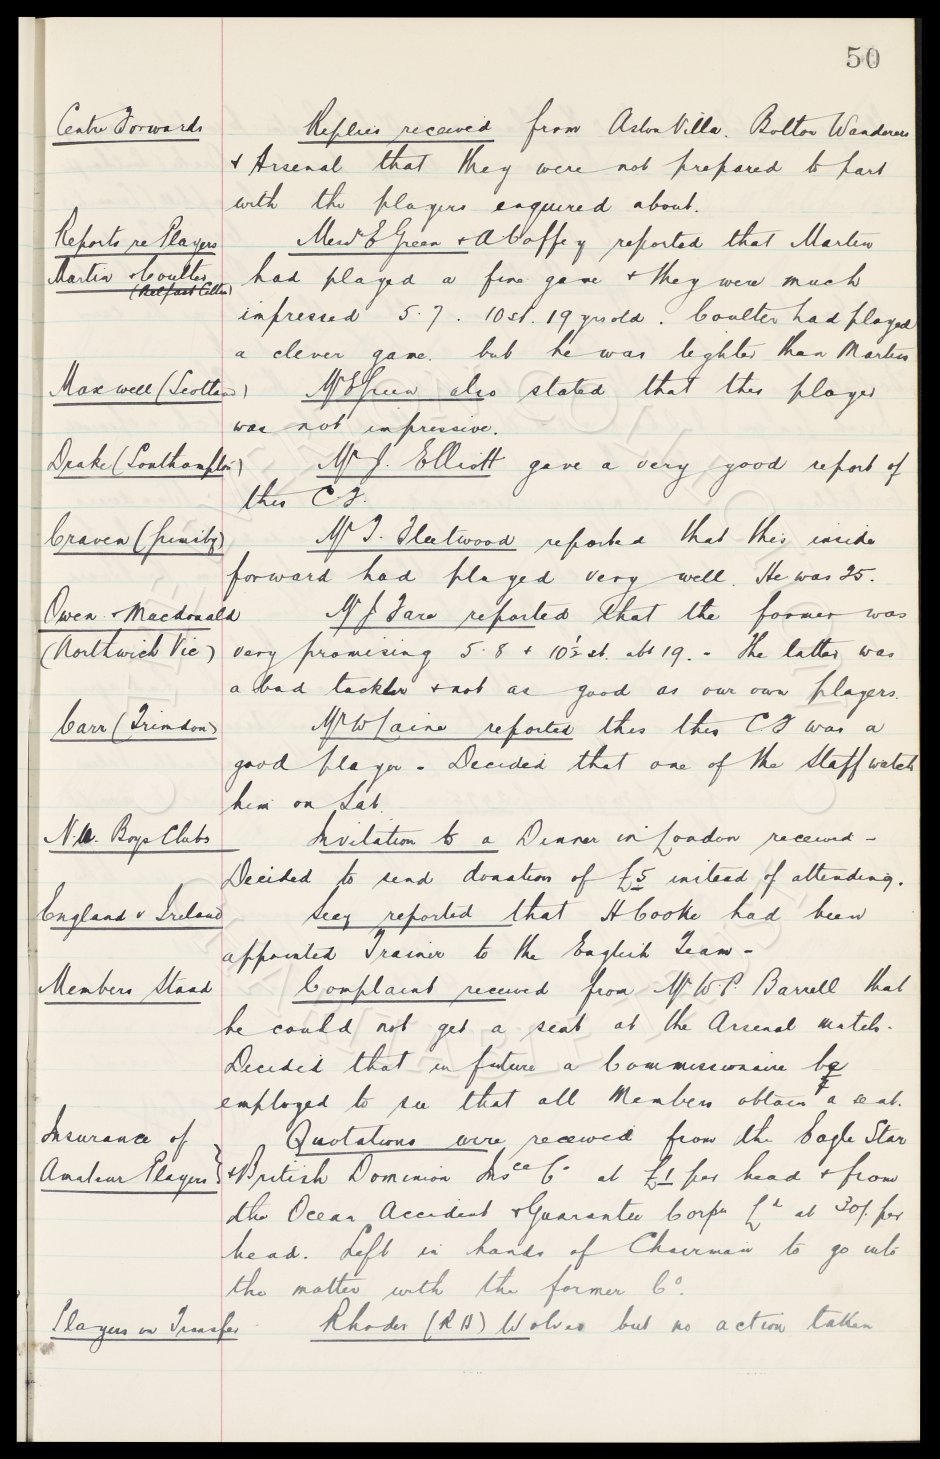 50
Centre Forwards Replies received from Aston Villa. Bolton Wanderers
& Arsenal that they were not prepared to part
with the players enquired about.
Reports re Players Messrs E Green & A Coffey reported that Martin
Martin & Coulter had played a fine game & they were much
(Belfast Celtic) impressed 5.7. 10st. 19 yrs old. Coulter had played
a clever game but he was lighter than Martin
Maxwell (Scotland) Mr E Green also stated that this player
was not impressive.
Drake (Southampton) Mr J. Elliott gave a very good report of
this C F.
Craven (Grimsby) Mr T. Fleetwood reported that this inside
forward had played very well. He was 25.
Owen & Macdonald Mr J Fare reported that the former was
(Northwich Vic) very promising 5.8 & 10½ st. abt 19. - The latter was
a bad tackler & not as good as our own players.
Carr (Trimdon) Mr W Caine reported this this C F was a
good player - Decided that one of the Staff watch
him on Sat.
N.A. Boys Clubs Invitation to a Dinner in London received -
Decided to send donation of £5 instead of attending.
England v Ireland Secy reported that H Cooke had been
appointed Trainer to the English Team -
Members Stand Complaint received from Mr W.P. Barrell that
he could not get a seat at the Arsenal match.
Decided that in future a Commissionaire be
employed to see that all Members obtain a seat.
Insurance of Quotations were received from the Eagle Star
Amateur Players } & British Dominion Insce Co at £1 per head & from
the Ocean Accident & Guarantee Corpn Ld at 30/. per
head. Left in hands of Chairman to go into
the matter with the former Co.
Players on Transfer Rhodes (R H) Wolves but no action taken